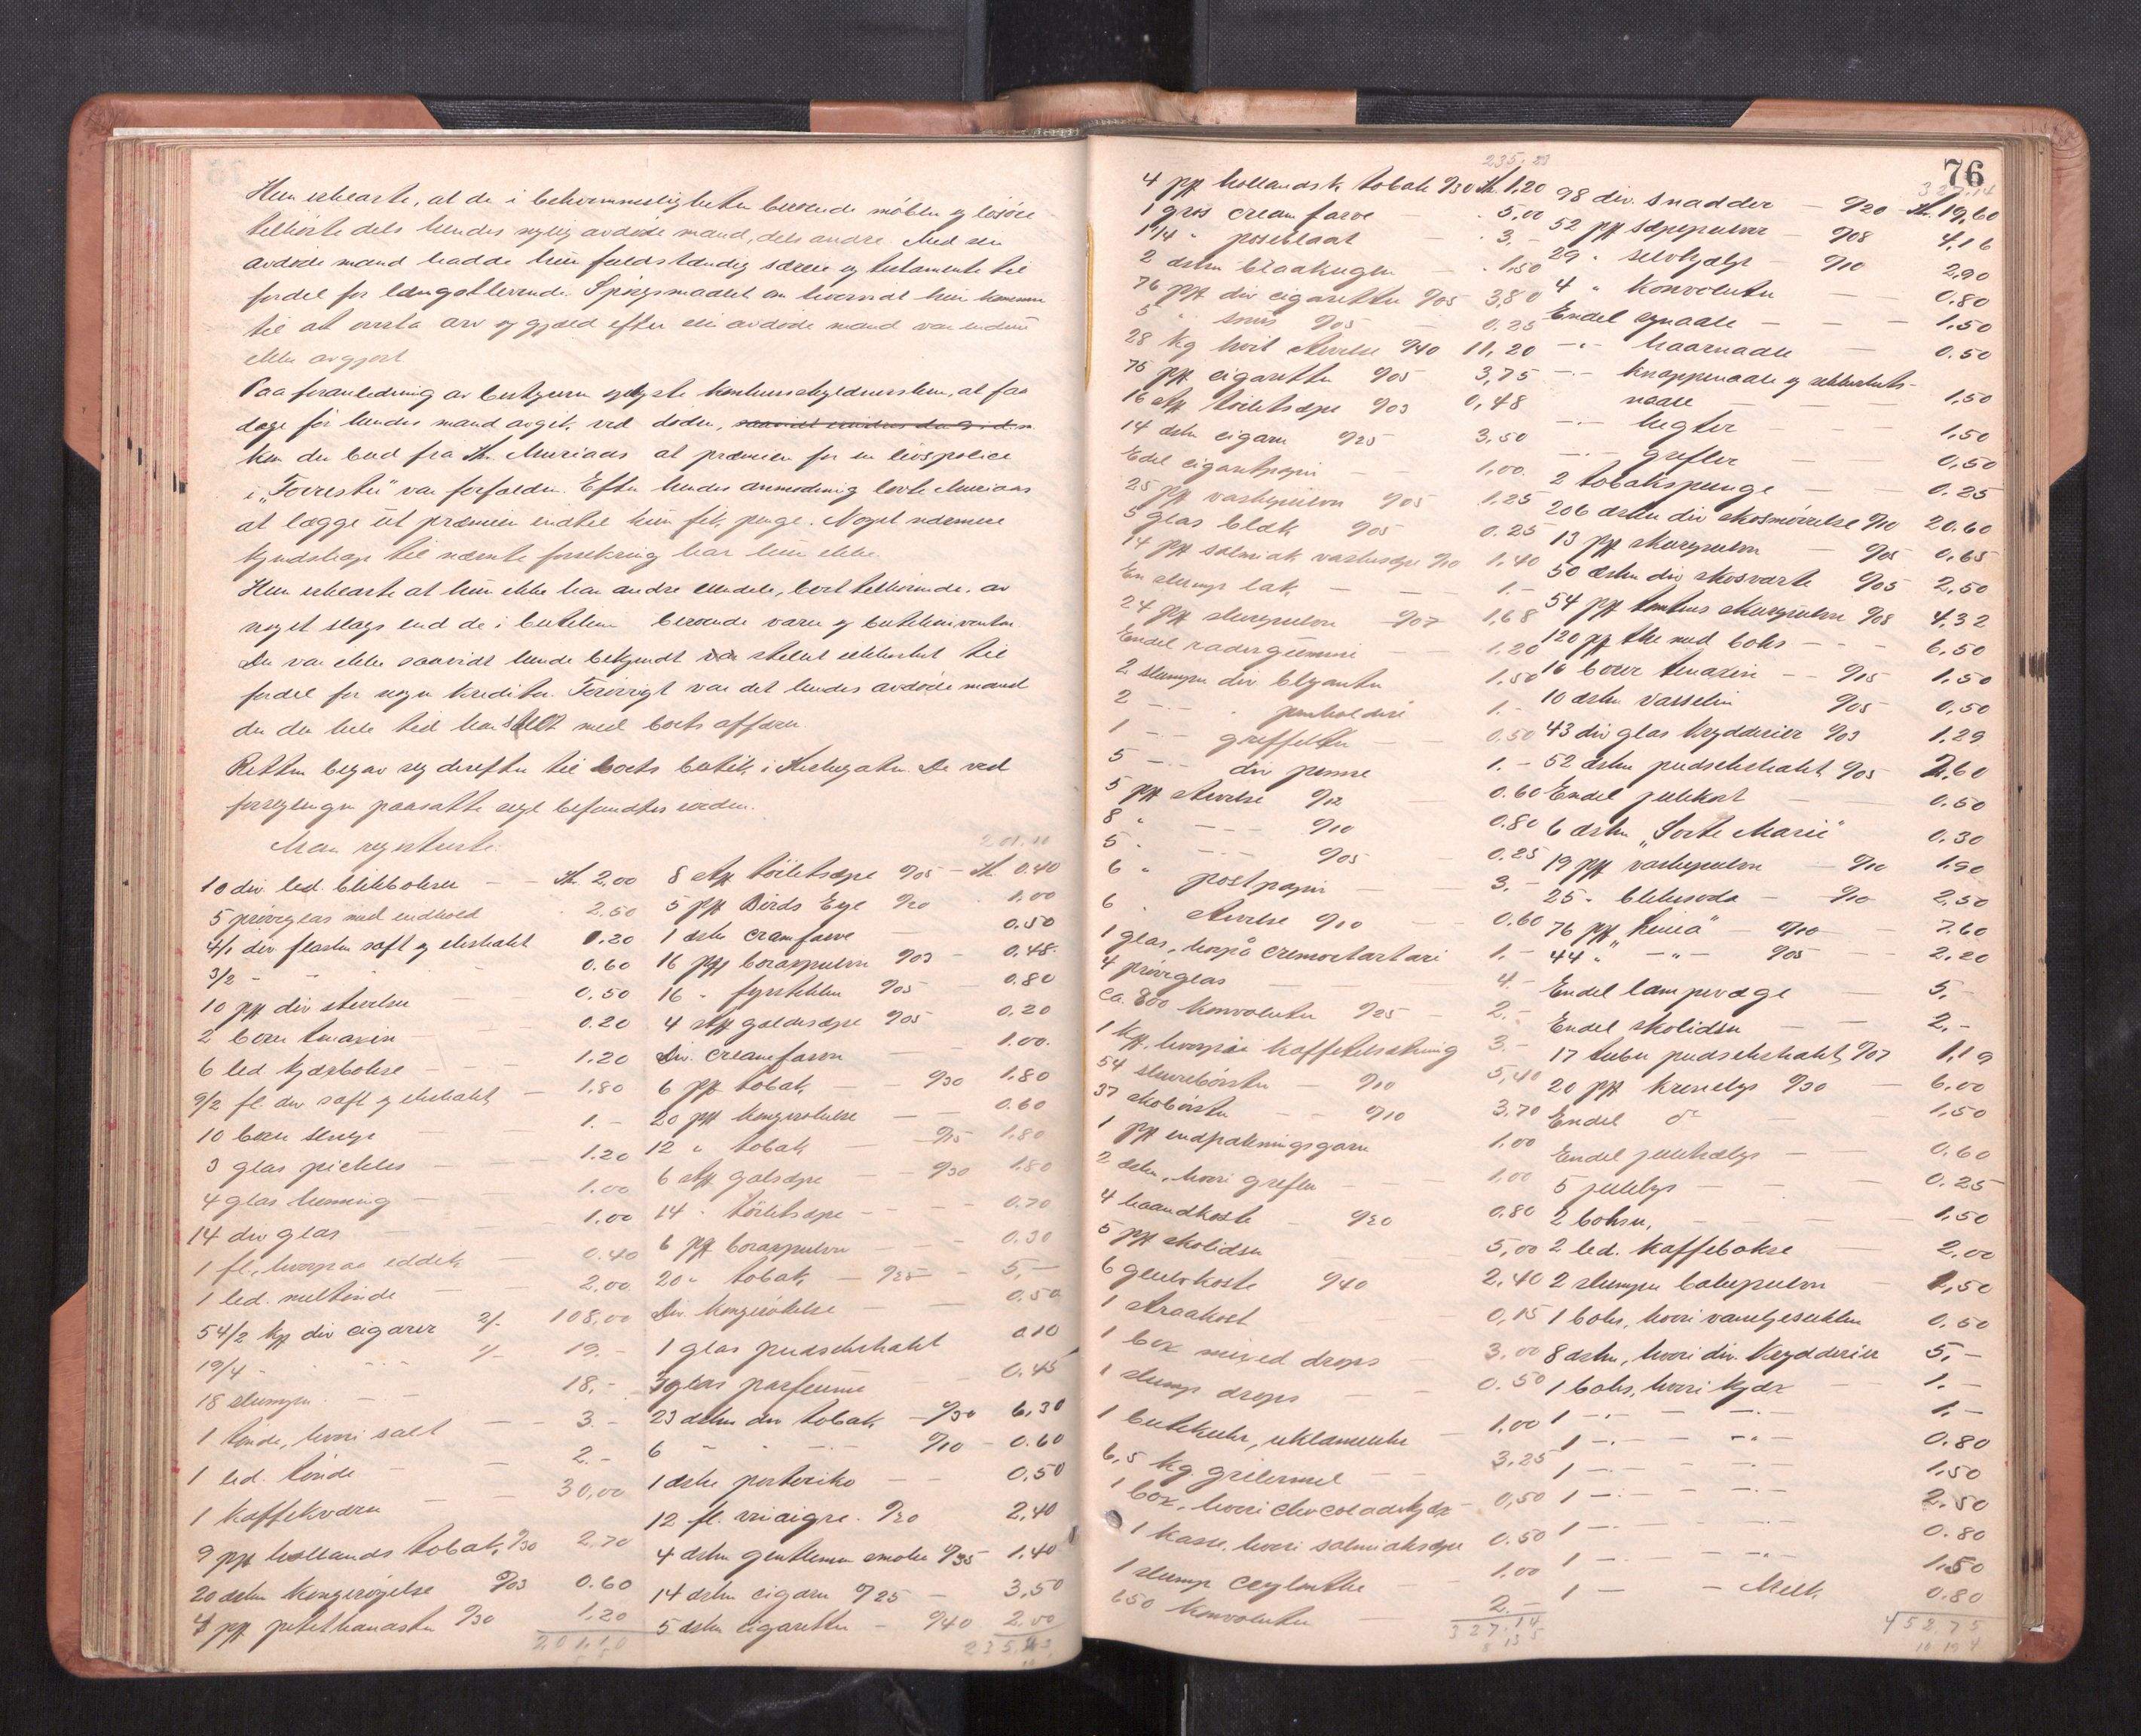 Hun erklærte, at de i bekvemmeligheten beroende møbler og løsøre
tilhørte dels hendes nylig avdøde mand, dels andre. Med sin
avdøde mand hadde hun fuldstændig særeie og testamente til
fordel for længstlevende. Spørgsmaalet om hvorvidt hun kommer
til at overta arv og gjæld efter sin avdøde mand var endnu
ikke avgjort
Paa foranledning av bestyreren oplyste konkursskyldnersken, at faa
dage før hendes mand avgik ved døden,
kom der bud fra Hr. Muriaas at præmien for en livspolice
i "Forrestu" var forfalden. Efter hendes anmodning lovte Muriaas
at lægge ut præmien indtil hun fik penge. Noget nærmere
kjendskap til nævnte forsikring har hun ikke.
Hun erklærte at hun ikke har andre eiendele, boet tilhørende, av
noget slags end de i butikken beroende varer og butikinventar
Der var ikke saavidt hende bekjendt stillet sikkerhet til
fordel for nogen kreditor. Forøvrigt var det hendes avdøde mand
der den hele tid har stelt med boets affærer.
Retten begav sig derefter til boets butik i Kirkegaten. De ved
forseglingen paasatte segl befandtes i orden.
Man registrerte:
10 div. led. blikbokser — Kr. 2,00
5 prøveglas med indhold 2.50
4/1 div flasker saft og ekstrakt 1.20
3/2 - 0.60
10 pk div stivelse 0.50
2 boxer tenaxin — 0.20
6 led kjæxbokse — 1.20
9/2 fl. div saft og ekstrakt — 1,80
10 boxer senge 1.-
3 glas pickles — 1.20
4 glas honning — 1.00
14 div glas — 1,00
1 fl., hvorpaa eddik — 0.40
1 led. meltønde — 2,00
54/2 kp div cigarer 2/- 108,00
19/4 - 1/- 19.-
18 slumper - 18,-
1 tønde, hvori salt — 3.-
1 led. tønde — 2.-
1 kaffekværn — 30,00
9 pk hollands tobak 0/30 2,70
20 æsker kongerøgelse 0/03 0.60
4 pk petitkanaster 0/30 1.20
201.10
201.10
8 stk toiletsæpe 0/05 — Kr 0.40
5 pk Birds Eye 0/20 1,00
1 æske cremfarve 0.50
16 pk boraxpulver 0/03 — 0.48.
16 - fyrstikker 0/05 0.80
4 stk galdesæpe 0/05 0.20
Div. creamefarver — 1.00.
6 pk tobak — 0/30 1.80
20 pk kongerøkelse — 0.60
12 " tobak — 0/15 1.80
6 stk galsæpe — 0/30 1.80
14 - toiletsæpe — 0.70
6 pk boraxpulver — 0.30
20 " tobak — 0/25 — 5,-
Div. kongerøkelse — 0.50
1 glas pudseekstrakt 0.10
3 glas parfeume 0.45
23 æsker div tobak — 0/30 6,30
6 - 0/10 — 0.60
1 æske portoriko — 0,50
12 fl. vinaigre. 0/20 2,40
4 æsker gentlemen smoke 0/35 1,40
14 æsker cigarer 0/25 — 3,50
5 æsker cigaretter — 0/40 2.00
76
235.23
4 pk hollandsk tobak 0/30 Kr. 1,20
1 gros cream farve — 5,00
1 1/4 " poseblaat — 3.-
2 æsker blaakugler — 1,50
76 pk div cigaretter 0/05 3,80
5 " snus 0/05 — 0.25
28 kg hvit stivelse 0/40 11,20
75 pk cigaretter 0/05 3,75
16 stk toiletsæpe 0/03 0,48
14 æsker cigarer 0/25 3,50
Edel cigaretpapir — 1,00.
25 pk vaskepulver 0/05 1.25
5 glas blæk 0/05 0.25
14 pk salmiak vaskesæpe 0/10 1,40
En slump lak — 1.-
24 pk skurepulver 0/07 1,68
Endel radergummi — 1.20
2 slumper div. blyanter 1.50
2 — penholderi 1.-
1 — griffelter — 0,50
5 — div penne 1.-
5 pk stivelse 0/12 0.60
8 " — 0/10 0.80
5 " — 0/05 0.25
6 " postpapir — 3.-
6 " stivelse 0/10 — 0.60
1 glas, hvorpå cremortartari 1.-
4 prøveglas — 4.-
ca. 800 konvolutter 0/25 — 2.-
1 kp. hvorpaa kaffetilsætning 3.-
54 skurebørster 0/10 5,40
37 skobørster — 0/10 3.70
1 pk indpakningsgarn 1,00
2 æsker, hvori grefler — 1,00
4 haandkoste — 0/20 0.80
5 pk skolidser 5,00
6 gulvkoste 0/40 2.40
1 straakost 0,15
1 box mixed drops — 3,00
1 slump drops — 0.50
1 butikuhr, reklameuhr 1,00
6,5 kg. grilermel — 3.25
1 box, hvori chocoladekjæx — 0,50
1 kasse, hvori salmiaksæpe 0.50
1 slump ceylonthe — 1,00
650 konvolutter — 2.-
327.14
327.14
98 div. snadder — 0/20 Kr. 19,60
52 pk sæpepulver — 0/08 4,16
29 " selvhjælp — 0/10 2,90
4 " konvolutter — 0.80
Endel synaale — 1,50
—"— haarnaale — 0.50
—"— knappenaale og sikkerhets-
naale — 1,50
—"— hegter — 1,50
—"— grefler — 0,50
2 tobakspunge — 0.25
206 æsker div skosmørelse 0/10 20.60
13 pk skurepulver — 0/05 0,65
50 æsker div skosværte 0/05 2,50
54 pk tomtens skurepulver 0/08 4,32
120 pk the med boks — 6,50
10 boxer tenaxin — 0/15 1,50
10 æsker vasselin 0/05 0,50
43 div glas krydderier 0/03 1.29
52 æsker pudseekstrakt 0/05 2,60
Endel julekort — 0.50
6 æsker "Sorte Marie" 0.30
19 pk vaskepulver — 0/10 1.90
25 " blekesoda — 0/10 2,50
76 pk "Kinia" — 0/10 — 7.60
44 " —"— 0/05 2.20
Endel lampevæge — 5.-
Endel skolidser — 2,-
17 tuber pudseekstrakt 0/07 1,19
20 pk kronelys 0/30 — 6.00
Endel do — 1,50
Endel julehælys — 0.60
5 julelys — 0.25
2 bokser, — 1,50
2 led. kaffebokse — 2,00
2 slumper bakepulver — 1,50
1 boks, hvori vaniljesukker 0.50
8 æsker, hvori div. krydderier 5,-
1 boks, hvori kjæx — 1.-
1 —"— —"— 1.-
1 —"— —"— 0.80
1 —"— —"— 1,50
1 —"— —"— 2.50
1 —"— —"— 0.80
1 —"— —"— 1.50
1 — — Melk 0.80
452.75